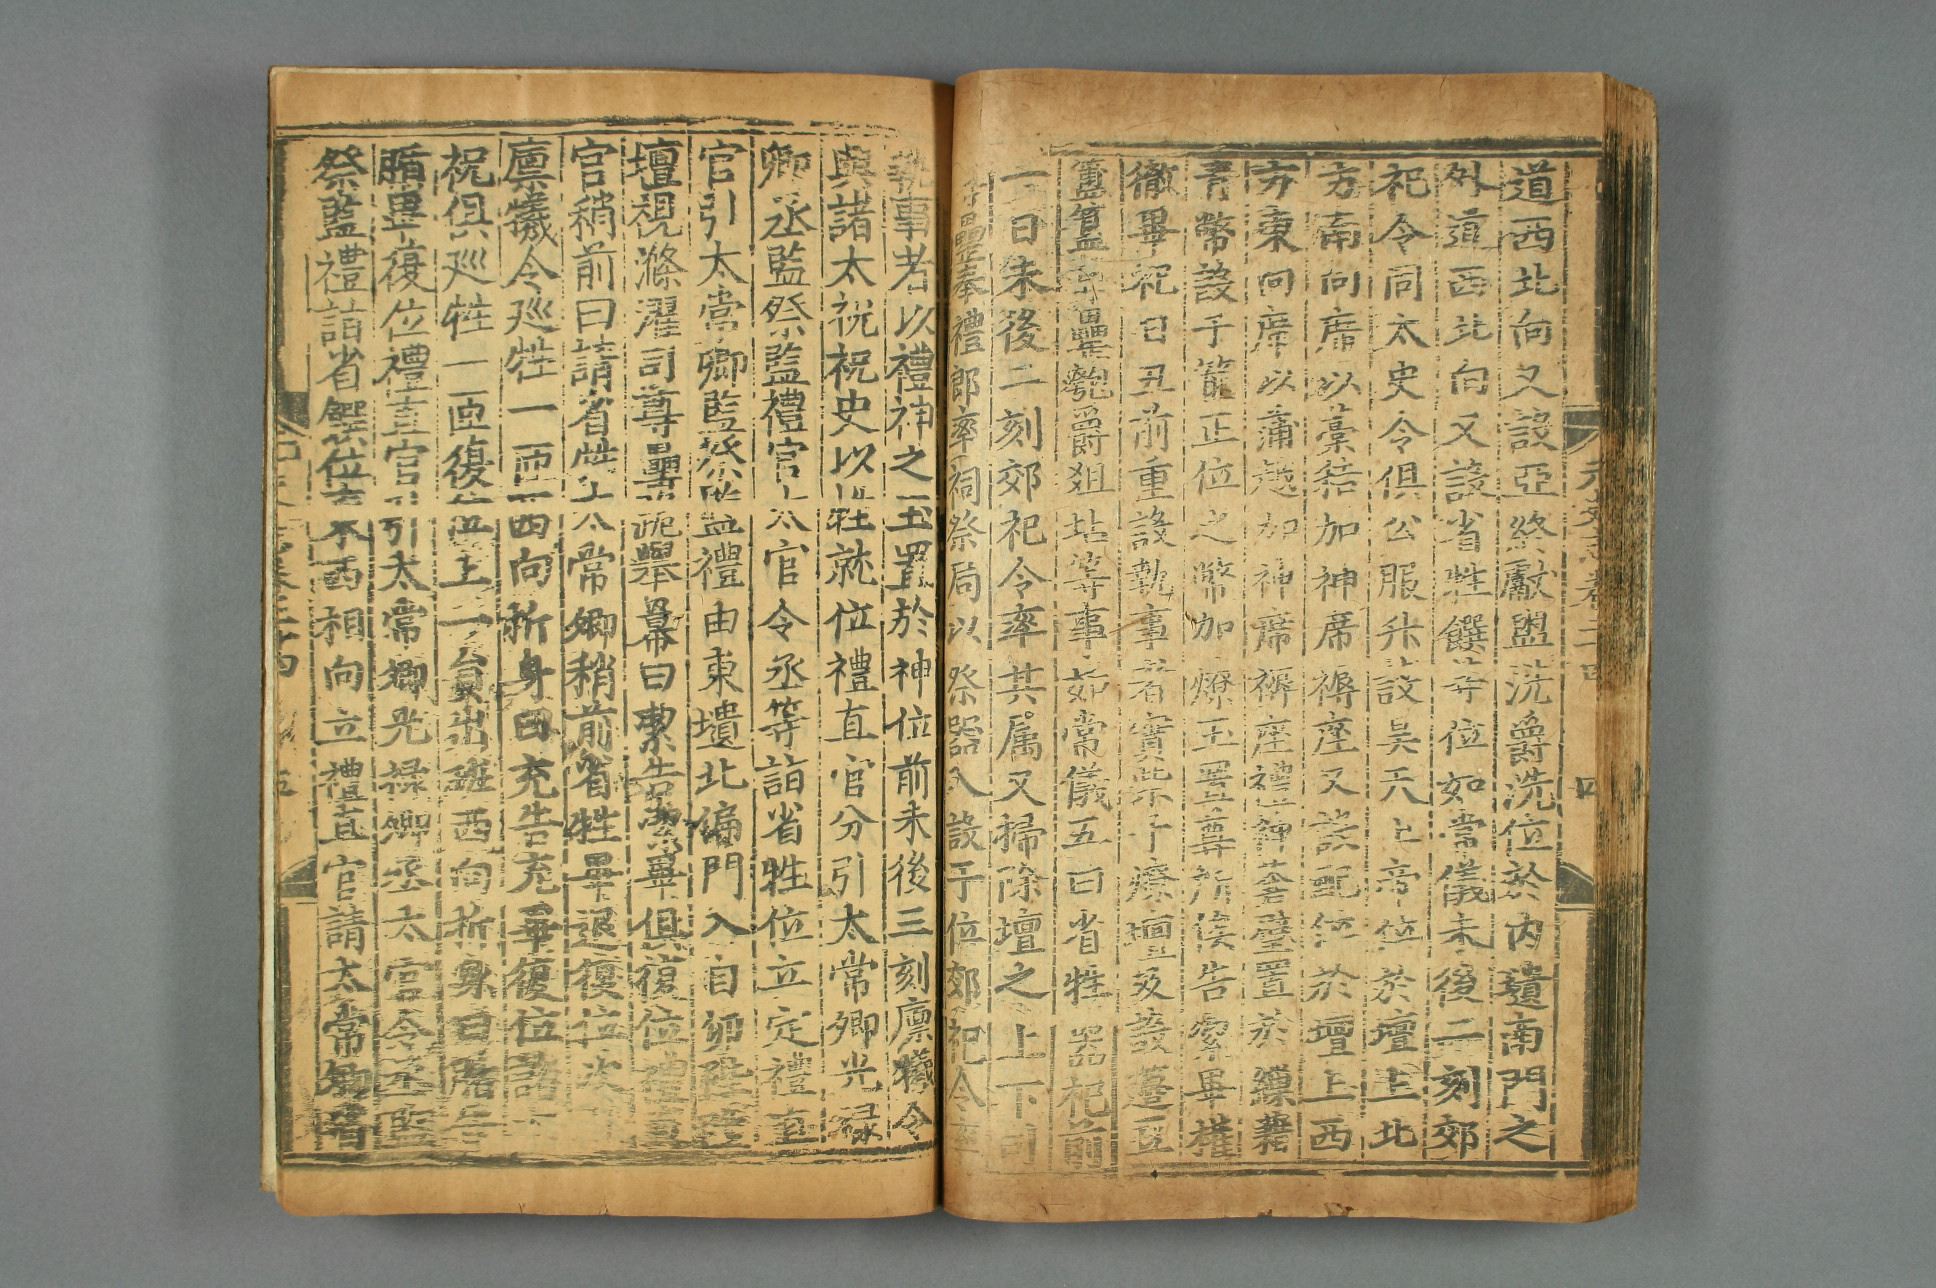 道西北向又設亞終獻盥洗爵洗位於內壝南門之
外道西北向又設省牲饌等位如常儀未後二刻郊
祀令同太史令俱公服升設昊天上帝位於壇上北
方南向席以藁秸加神席褥座又設配位於壇上西
方東向席以蒲越加神席褥座禮神蒼璧置於繅藉
青幣設于篚正位之幣加燎玉置尊所俟告潔畢權
徹畢祀日丑前重設執事者實柴于燎壇及設籩豆
簠簋尊罍匏爵俎坫等事如常儀五曰省牲器祀前
一日未後二刻郊祀令率其属又掃除壇之上下司
尊罍奉禮郎率祠祭局以祭器入設于位郊祀令率
執事者以禮神之玉置於神位前未後三刻廪犧令
與諸太祝祝史以牲就位禮直官分引太常卿光禄
卿丞監祭監禮官太官令丞等詣省牲位立定禮直
官引太常卿監祭監禮由東壝北偏門入自卯陛登
壇視滌濯司尊罍跪舉冪曰潔告潔畢俱復位禮直
官稍前曰請省牲太常卿稍前省牲畢退復位次引
廪犧令巡牲一匝西向折身曰充告充畢復位諸太
祝俱巡牲一匝復位上一員出班西向折身曰腯告
腯畢復位禮直官引太常卿光禄卿丞太官令丞監
祭監禮詣省饌位東西相向立禮直官請太常卿省
元史志卷二十四
四